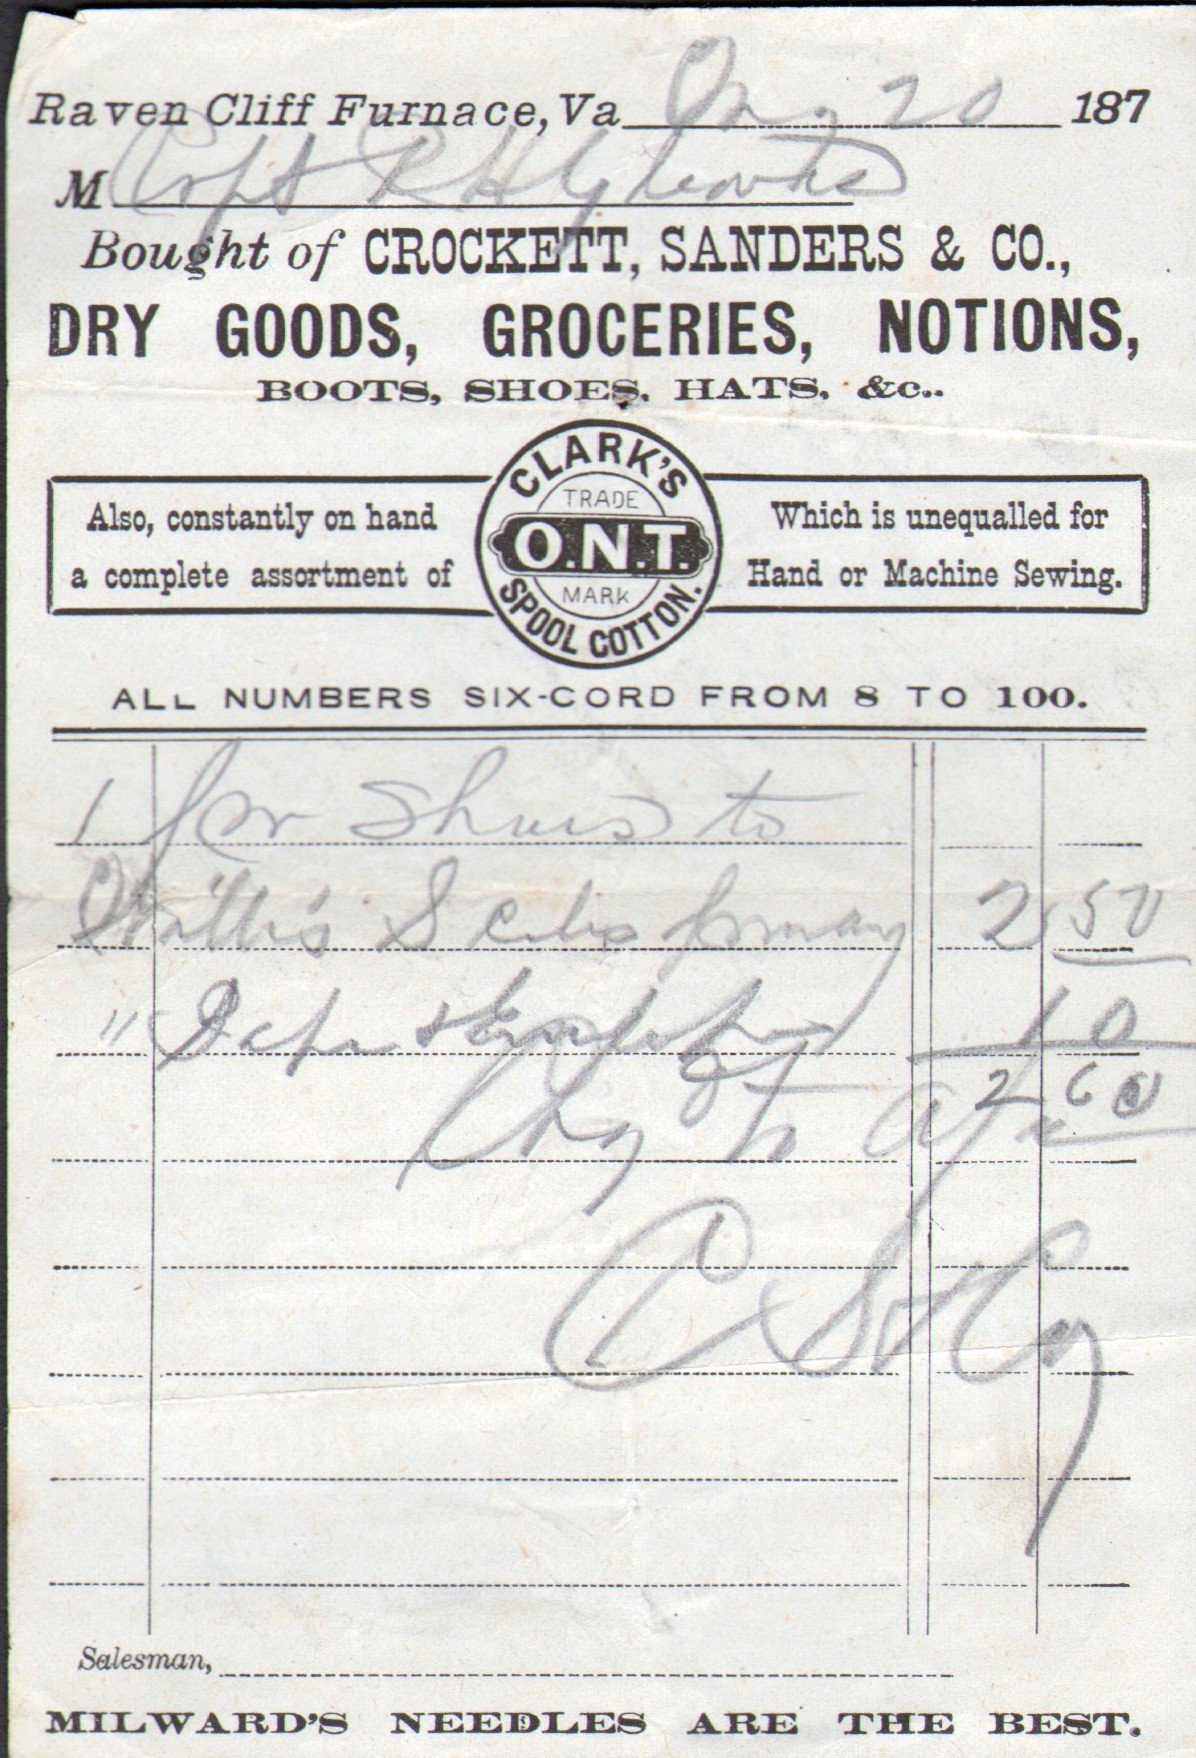 Raven Cliff Furnace, Va 20 187
M Capt R H
Bought of CROCKETT, SANDERS & CO.,
DRY GOODS, GROCERIES, NOTIONS,
BOOTS, SHOES, HATS, &c..
Also, constantly on hand
a complete assortment of
CLARK'S
TRADE
O.N.T.
MARK
SPOOL COTTON.
Which is unequalled for
Hand or Machine Sewing.
ALL NUMBERS SIX-CORD FROM 8 TO 100.
1 pr Shoes to
2 50
" 10
Chg To 2 60
C S & Co
Salesman,
MILWARD'S NEEDLES ARE THE BEST.